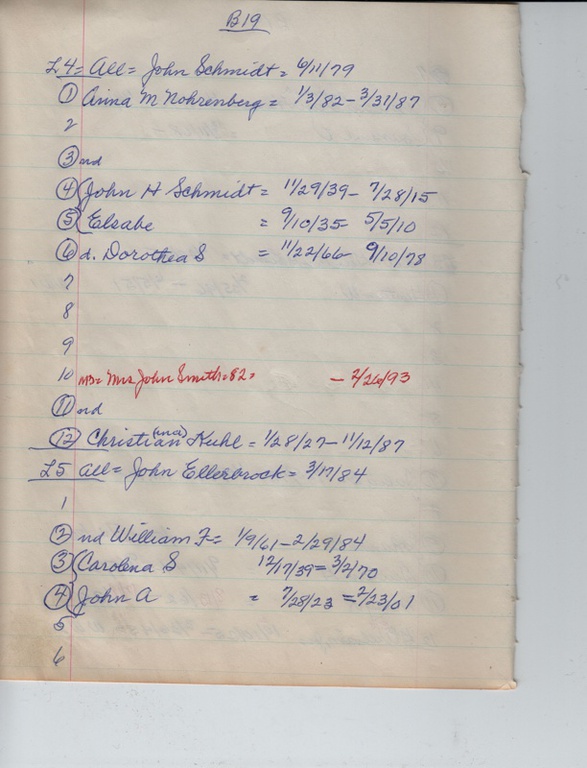 B19
L4 = All = John Schmidt = 6/11/79
1 Anna M Nohrenberg = 1/3/82 - 3/31/87
2
3 nd
4 John H Schmidt = 11/29/39 - 7/28/15
5 Elsabe = 9/10/35 - 5/5/10
6 d. Dorothea S = 11/22/66 - 9/10/78
7
8
9
10 NB = Mrs John Smith = 82 = - 2/26/93
11 nd
12 Christian (ina) Kuhl = 1/28/27 - 11/12/87
L5 all = John Ellerbrock = 3/17/84
1
2 nd William F = 1/9/61 - 2/29/84
3 Carolena S 12/17/39 = 3/2/70
4 John A = 7/28/23 = 2/23/01
5
6